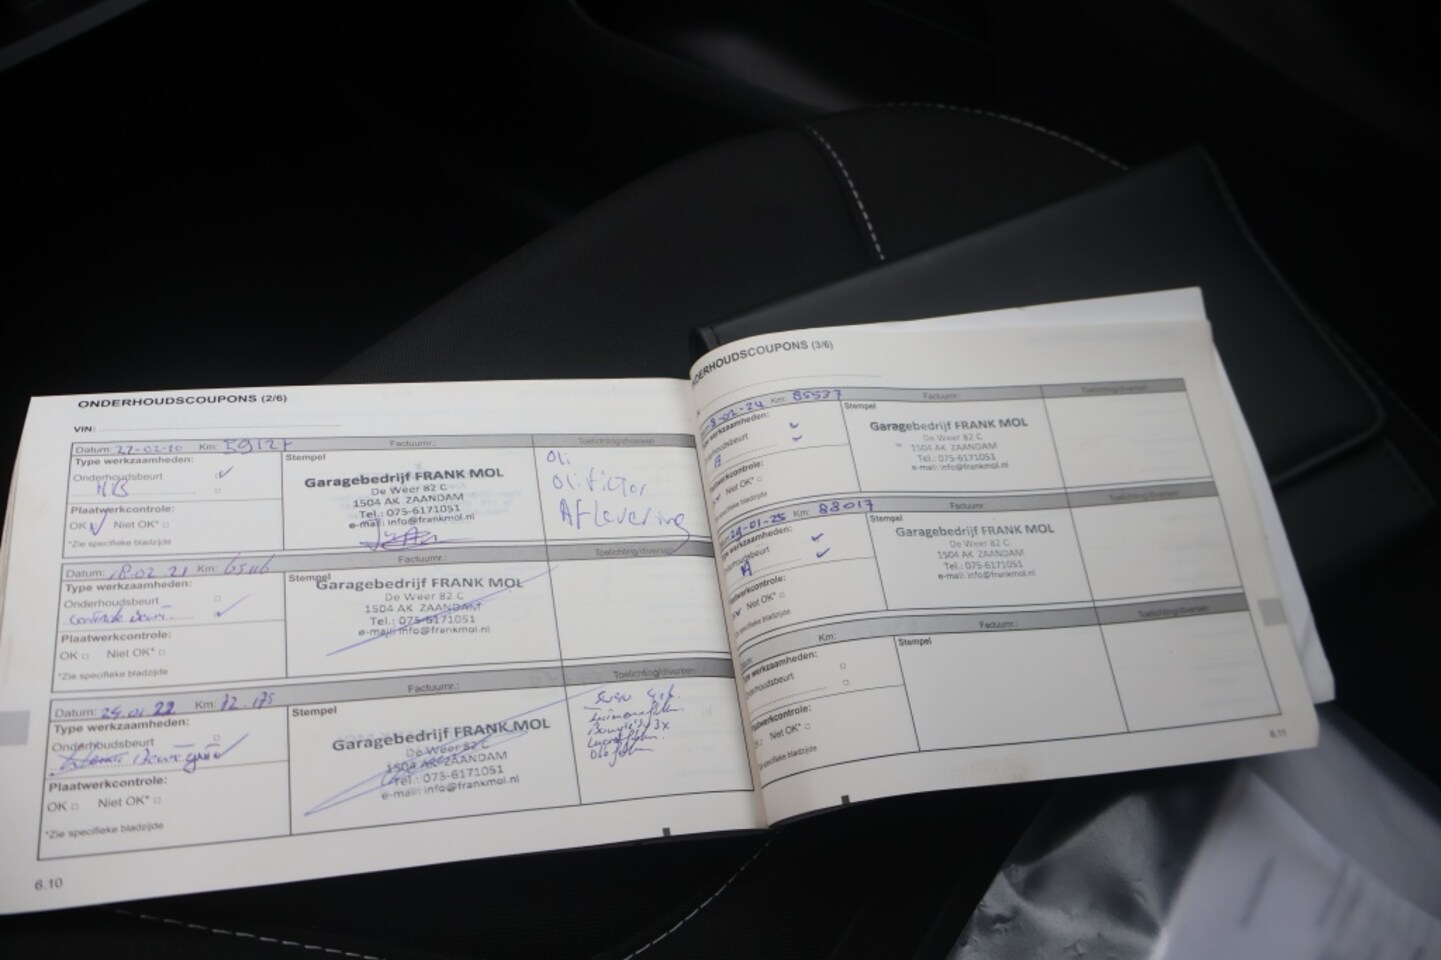 ONDERHOUDSCOUPONS (2/6)
VIN:
Datum: 27-02-20 Km: 59127 Factuurnr.: Toelichting/diversen
Type werkzaamheden:
Onderhoudsbeurt
Plaatwerkcontrole:
OK Niet OK*
*Zie specifieke bladzijde
Stempel
Garagebedrijf FRANK MOL
De Weer 82 C
1504 AK ZAANDAM
Tel.: 075-6171051
e-mail: info@frankmol.nl
Oli
Olifilter
Aflevering
Datum: 18.02.21 Km: 65116 Factuurnr.: Toelichting/diversen
Type werkzaamheden:
Onderhoudsbeurt
Plaatwerkcontrole:
OK Niet OK*
*Zie specifieke bladzijde
Stempel
Garagebedrijf FRANK MOL
1504 AK ZAANDAM
Tel.: 075-6171051
e-mail: info@frankmol.nl
Datum: 24.01 22 Km: 72.175 Factuurnr.: Toelichting/diversen
Type werkzaamheden:
Onderhoudsbeurt
Plaatwerkcontrole:
OK Niet OK*
*Zie specifieke bladzijde
Stempel
Garagebedrijf FRANK MOL
De Weer 82 C
1504 AK ZAANDAM
Tel.: 075-6171051
e-mail: info@frankmol.nl
6.10
NDERHOUDSCOUPONS (3/6)
8-02-24 Km: 85537 Factuurnr.: Toelichting/diversen
Type werkzaamheden:
Onderhoudsbeurt
A
Plaatwerkcontrole:
Niet OK*
specifieke bladzijde
Stempel
Garagebedrijf FRANK MOL
De Weer 82 C
1504 AK ZAANDAM
Tel.: 075-6171051
e-mail: info@frankmol.nl
29-01-25 Km: 88017 Factuurnr.: Toelichting/diversen
Type werkzaamheden:
Onderhoudsbeurt
A
Plaatwerkcontrole:
Niet OK*
specifieke bladzijde
Stempel
Garagebedrijf FRANK MOL
De Weer 82 C
1504 AK ZAANDAM
Tel.: 075-6171051
e-mail: info@frankmol.nl
Km: Factuurnr.: Toelichting/diversen
Type werkzaamheden:
Onderhoudsbeurt
Plaatwerkcontrole:
Niet OK*
specifieke bladzijde
Stempel
6.11